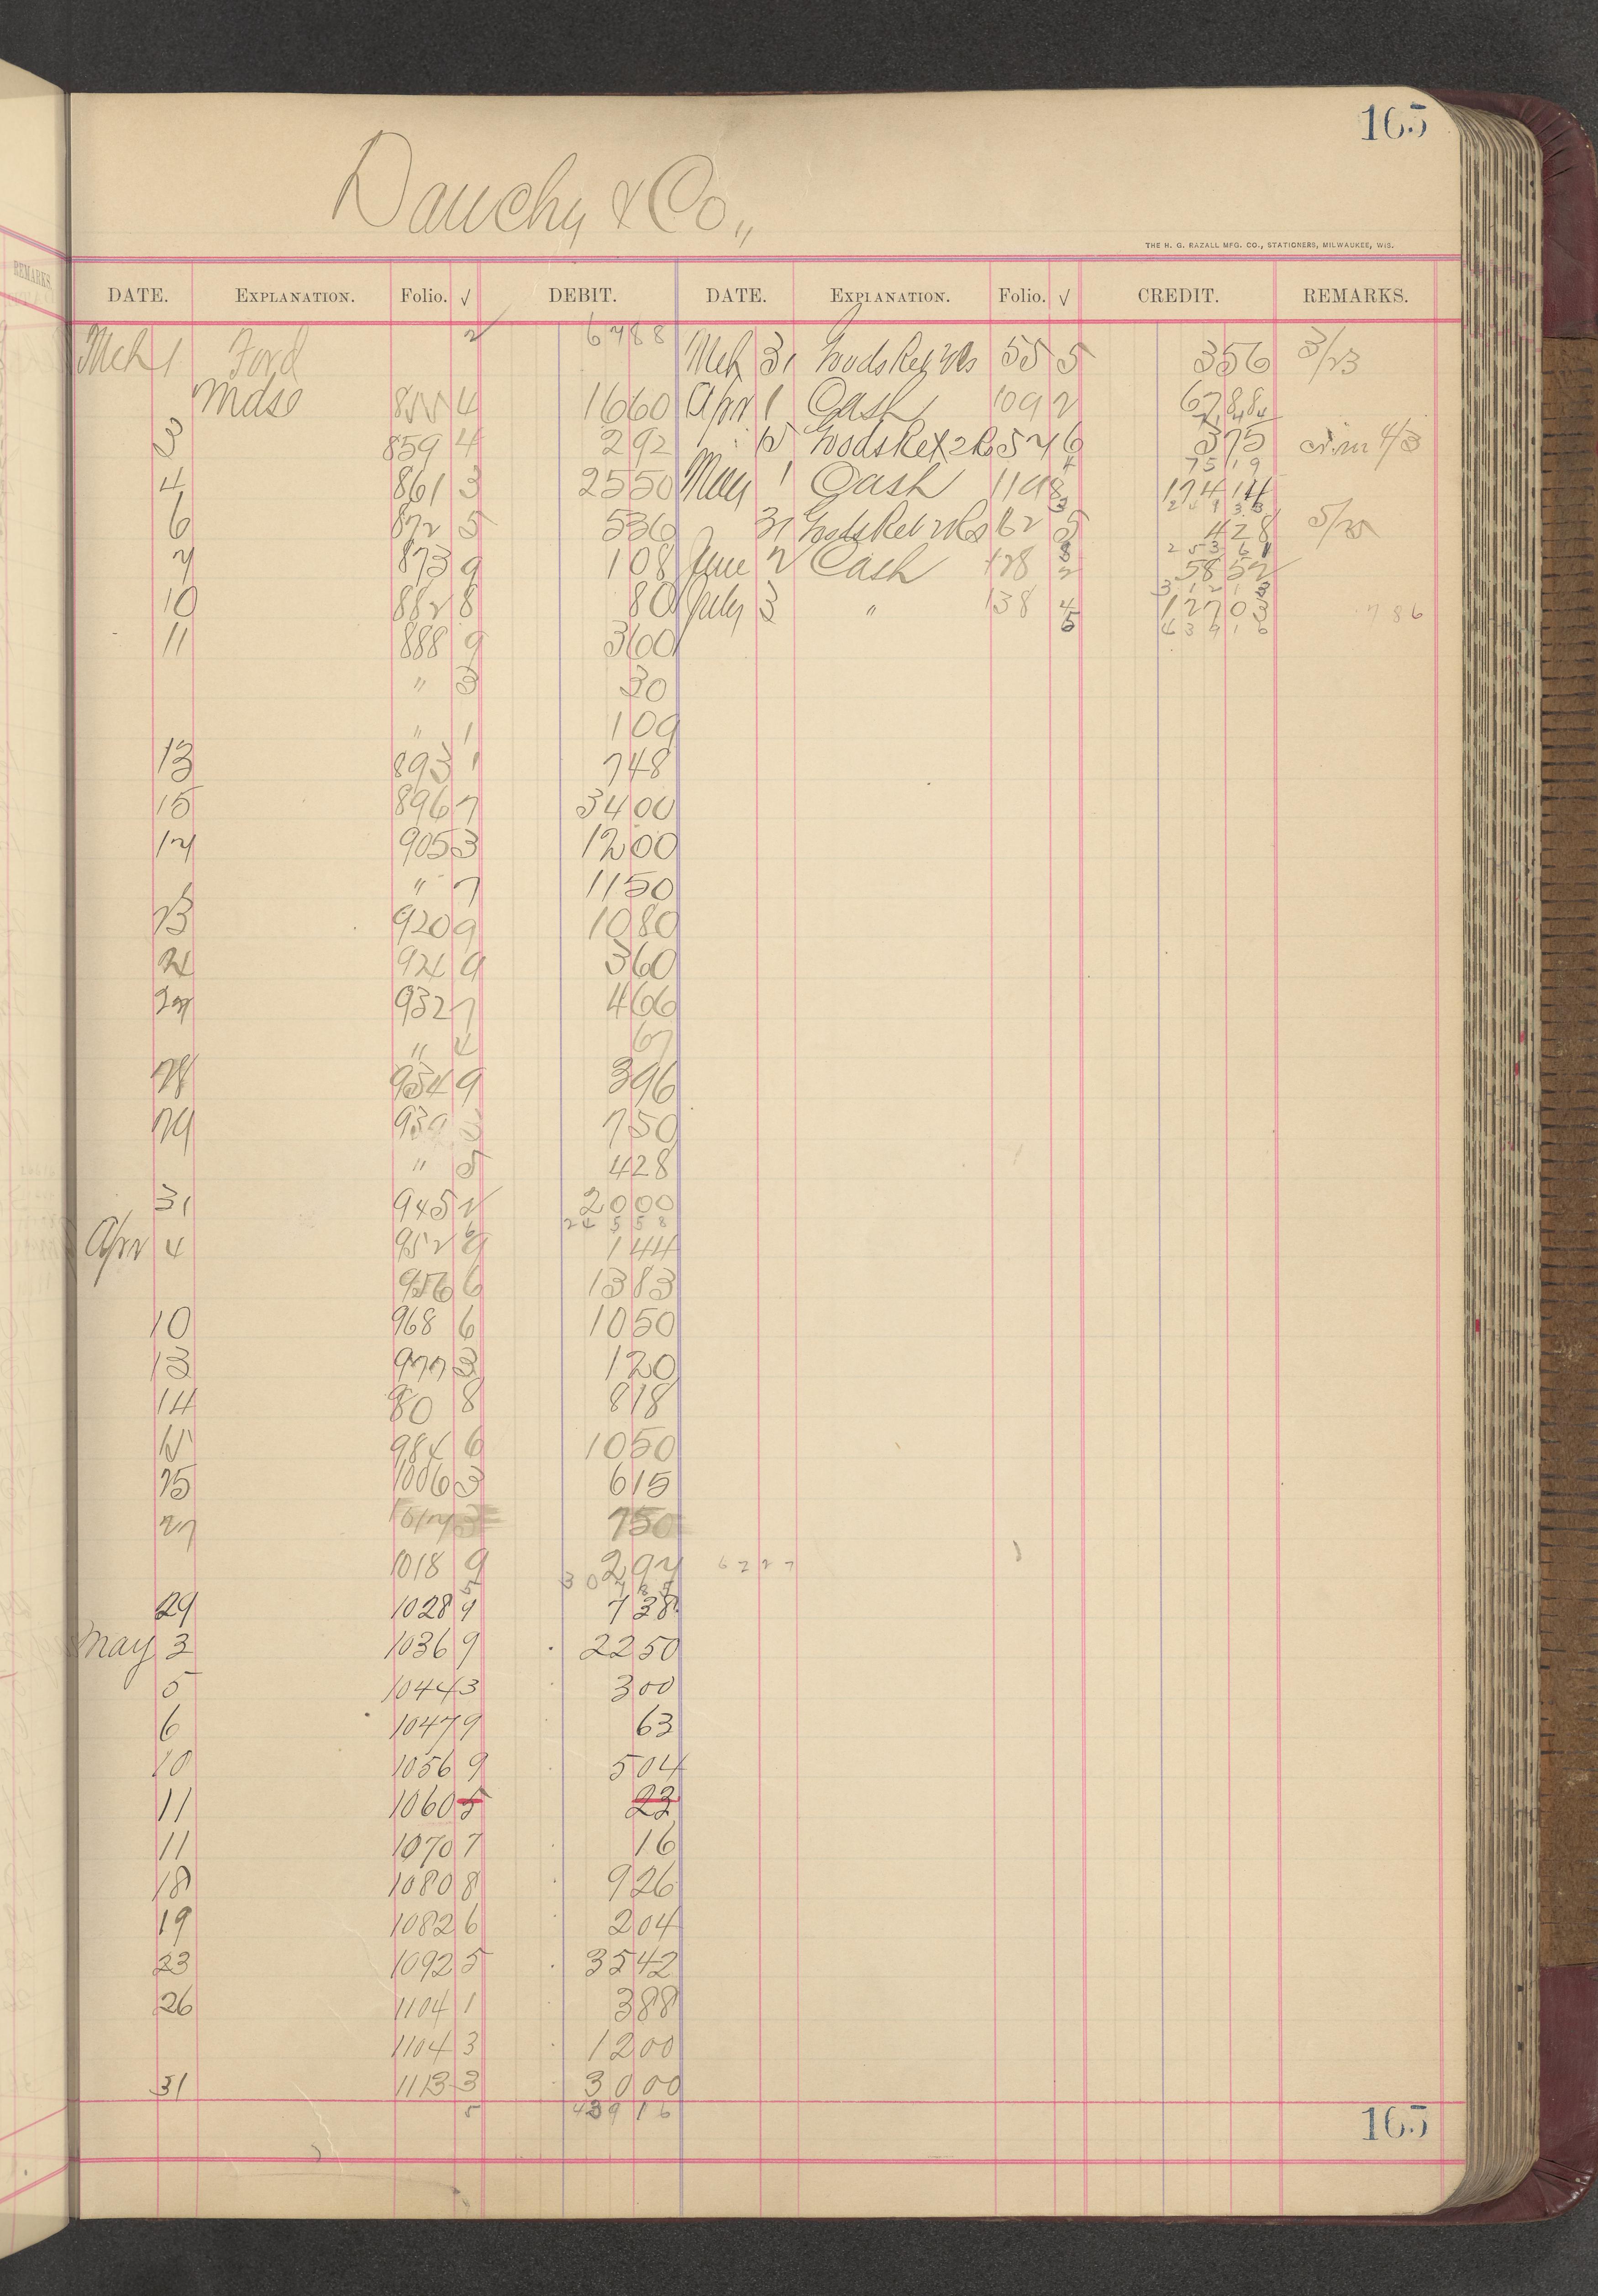 165
Dauchy & Co.,
THE H. G. RAZALL MFG. CO., STATIONERS, MILWAUKEE, WIS.
DATE. EXPLANATION. Folio. √ DEBIT. DATE. EXPLANATION. Folio. √ CREDIT. REMARKS.
Mch 1 Ford 2 6788 Mch 31 Goods Ret 55 5 356 3/23
Mdse 855 4 1660 Apr 1 Cash 109 2 6788
7144
3 859 4 292 15 Goods Ret 57 6 375 4/3
7519
4 861 3 2550 May 1 Cash 119 8 17414
24933
6 872 5 536 31 Goods Ret 62 5 428 5/25
25361
7 873 9 108 June 2 Cash 128 2 5852
31213
10 882 8 80 July 3 " 138 4 12703 786
43916
11 888 9 360
" 3 30
" 1 109
13 893 1 748
15 896 7 3400
17 905 3 1200
" 7 1150
23 920 9 1080
24 924 9 360
27 932 7 466
" 4 67
28 934 9 396
29 939 3 750
" 5 428
31 945 2 2000
24558
Apr 4 952 9 144
956 6 1383
10 968 6 1050
13 977 3 120
14 80 8 818
15 984 6 1050
25 1006 3 615
27 750
1018 9 297 6227
29 1028 9 738
May 3 1036 9 2250
5 1044 3 300
6 1047 9 63
10 1056 9 504
11 1060 5 23
11 1070 7 16
18 1080 8 926
19 1082 6 204
23 1092 5 3542
26 1104 1 388
1104 3 1200
31 1113 3 3000
5 43916
165